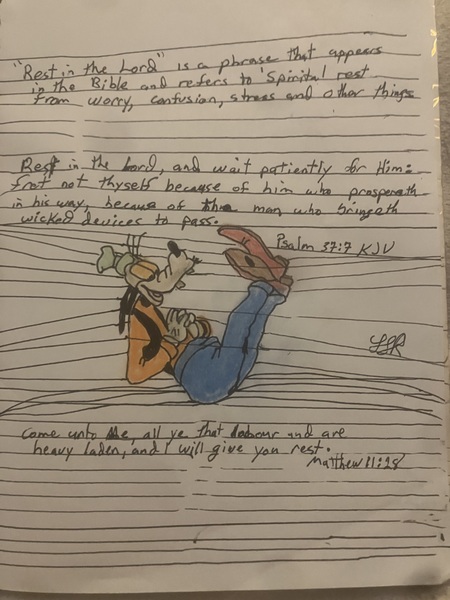 "Rest in the Lord" is a phrase that appears
in the Bible and refers to Spirital rest
from worry, confusion, stress and other things
Rest in the Lord, and wait patiently for Him:
frat not thyself because of him who prospereth
in his way, becaue of the man who bringeth
wicked devices to pass.
Psalm 37:7 KJV
Come unto Me, all ye that labour and are
heavy laden, and I will give you rest.
Matthew 11:28